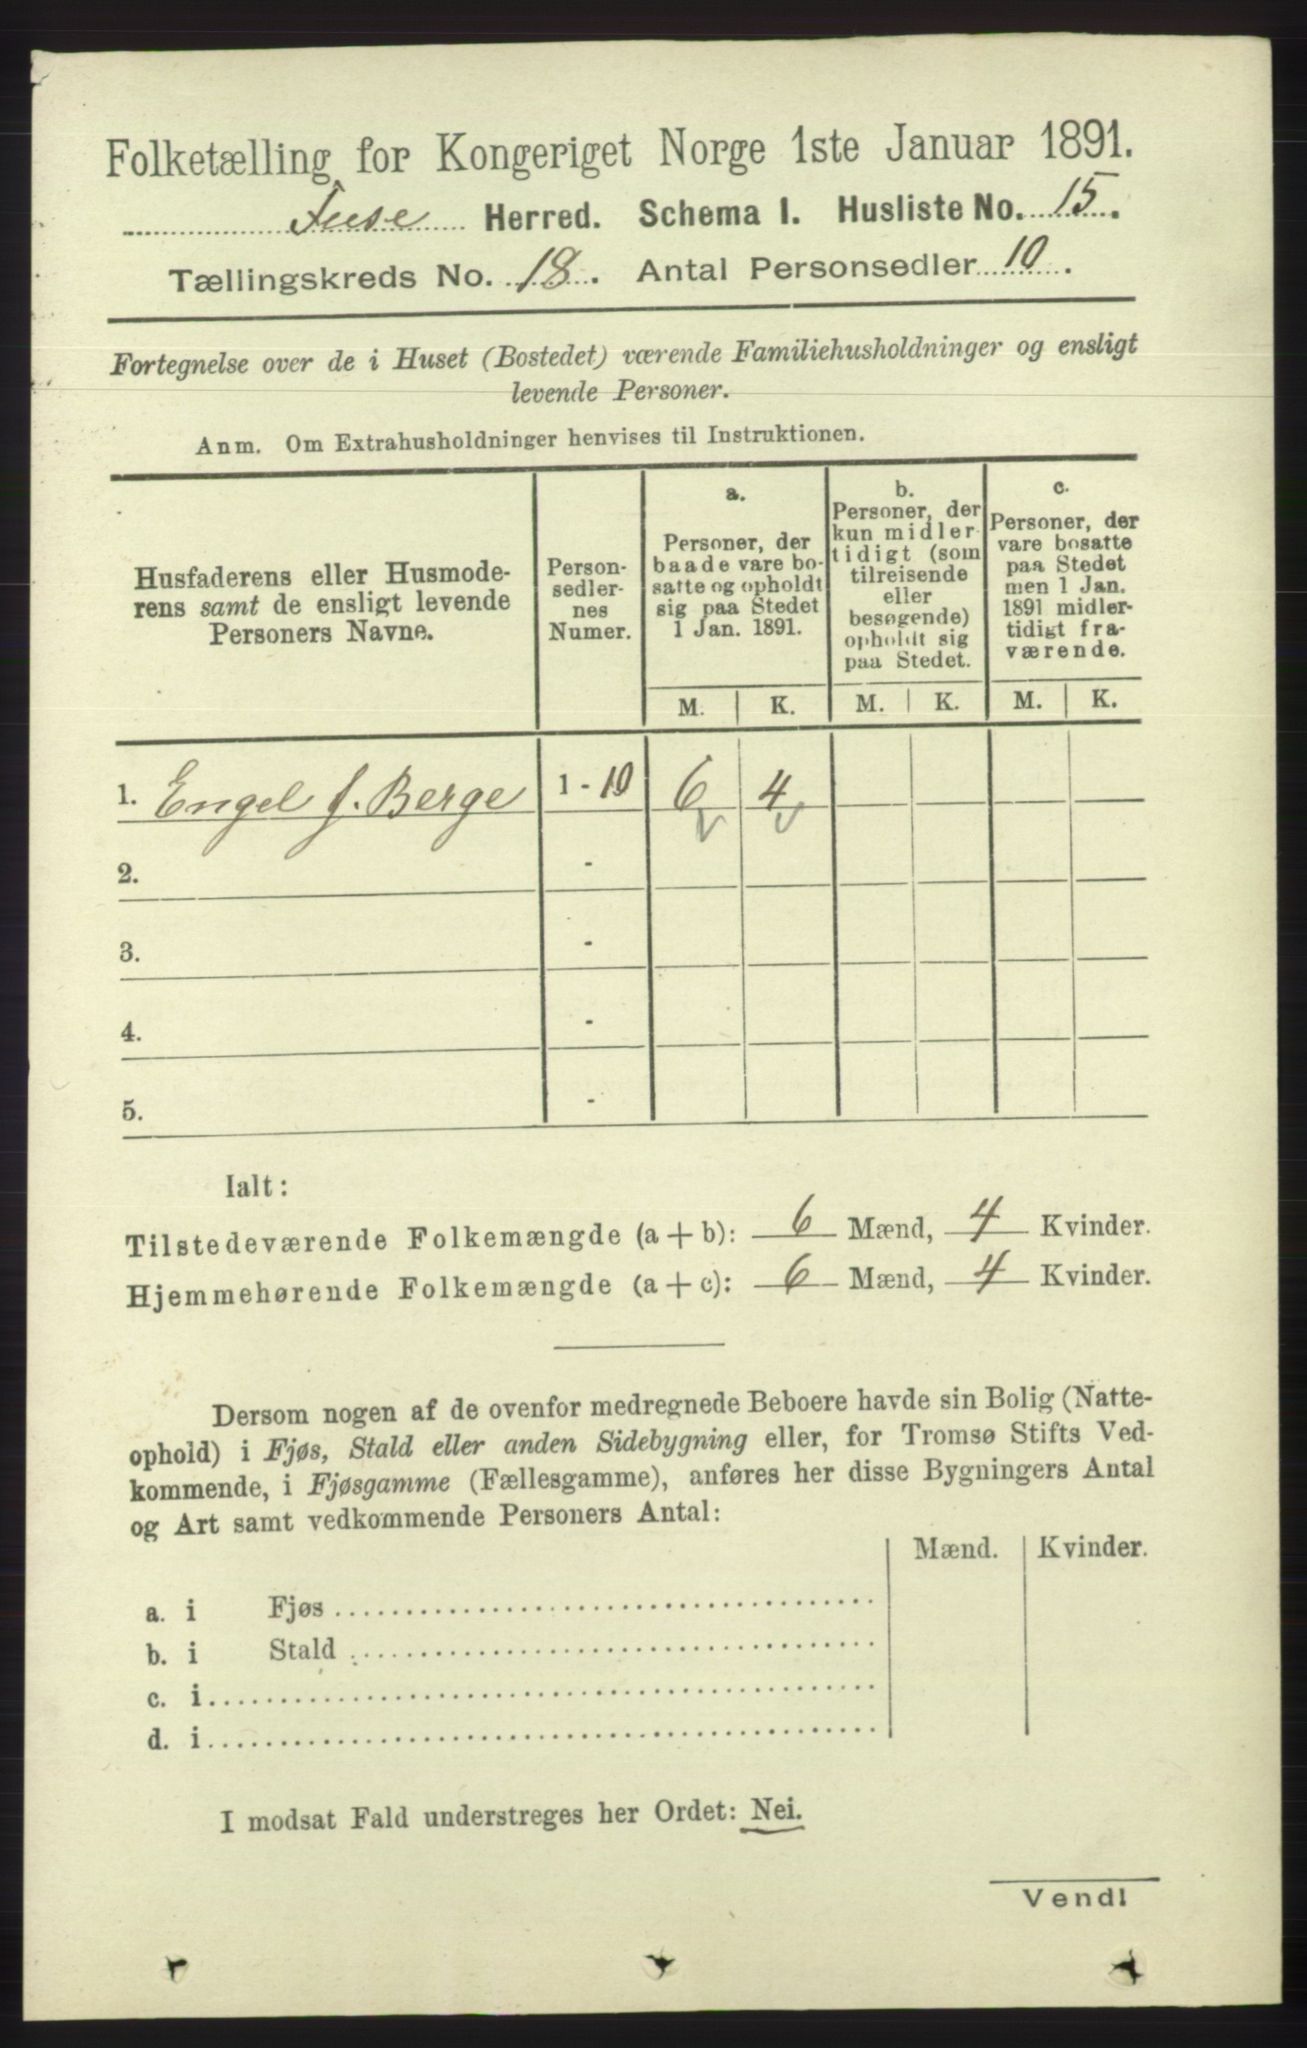 Folketælling for Kongeriget Norge 1ste Januar 1891.
Fuse Herred. Schema I. Husliste No. 15.
Tællingskreds No. 18. Antal Personsedler 10.
Fortegnelse over de i Huset (Bostedet) værende Familiehusholdninger og ensligt
levende Personer.
Anm. Om Extrahusholdninger henvises til Instruktionen.
Husfaderens eller Husmode-
rens samt de ensligt levende
Personers Navne.
Person-
sedler-
nes
Numer.
a.
Personer, der
baade vare bo-
satte og opholdt
sig paa Stedet
1 Jan. 1891.
b.
Personer, der
kun midler-
tidigt (som
tilreisende
eller
besøgende)
opholdt sig
paa Stedet.
c.
Personer, der
vare bosatte
paa Stedet
men 1 Jan.
1891 midler-
tidigt fra-
værende.
M. K. M. K. M. K.
1. Engel J. Berge 1 - 10 6 4
2. -
3. -
4. -
5. -
Ialt:
Tilstedeværende Folkemængde (a + b): 6 Mænd, 4 Kvinder.
Hjemmehørende Folkemængde (a + c): 6 Mænd, 4 Kvinder.
Dersom nogen af de ovenfor medregnede Beboere havde sin Bolig (Natte-
ophold) i Fjøs, Stald eller anden Sidebygning eller, for Tromsø Stifts Ved-
kommende, i Fjøsgamme (Fællesgamme), anføres her disse Bygningers Antal
og Art samt vedkommende Personers Antal:
Mænd. Kvinder.
a. i Fjøs
b. i Stald
c. i
d. i
I modsat Fald understreges her Ordet: Nei.
Vend!